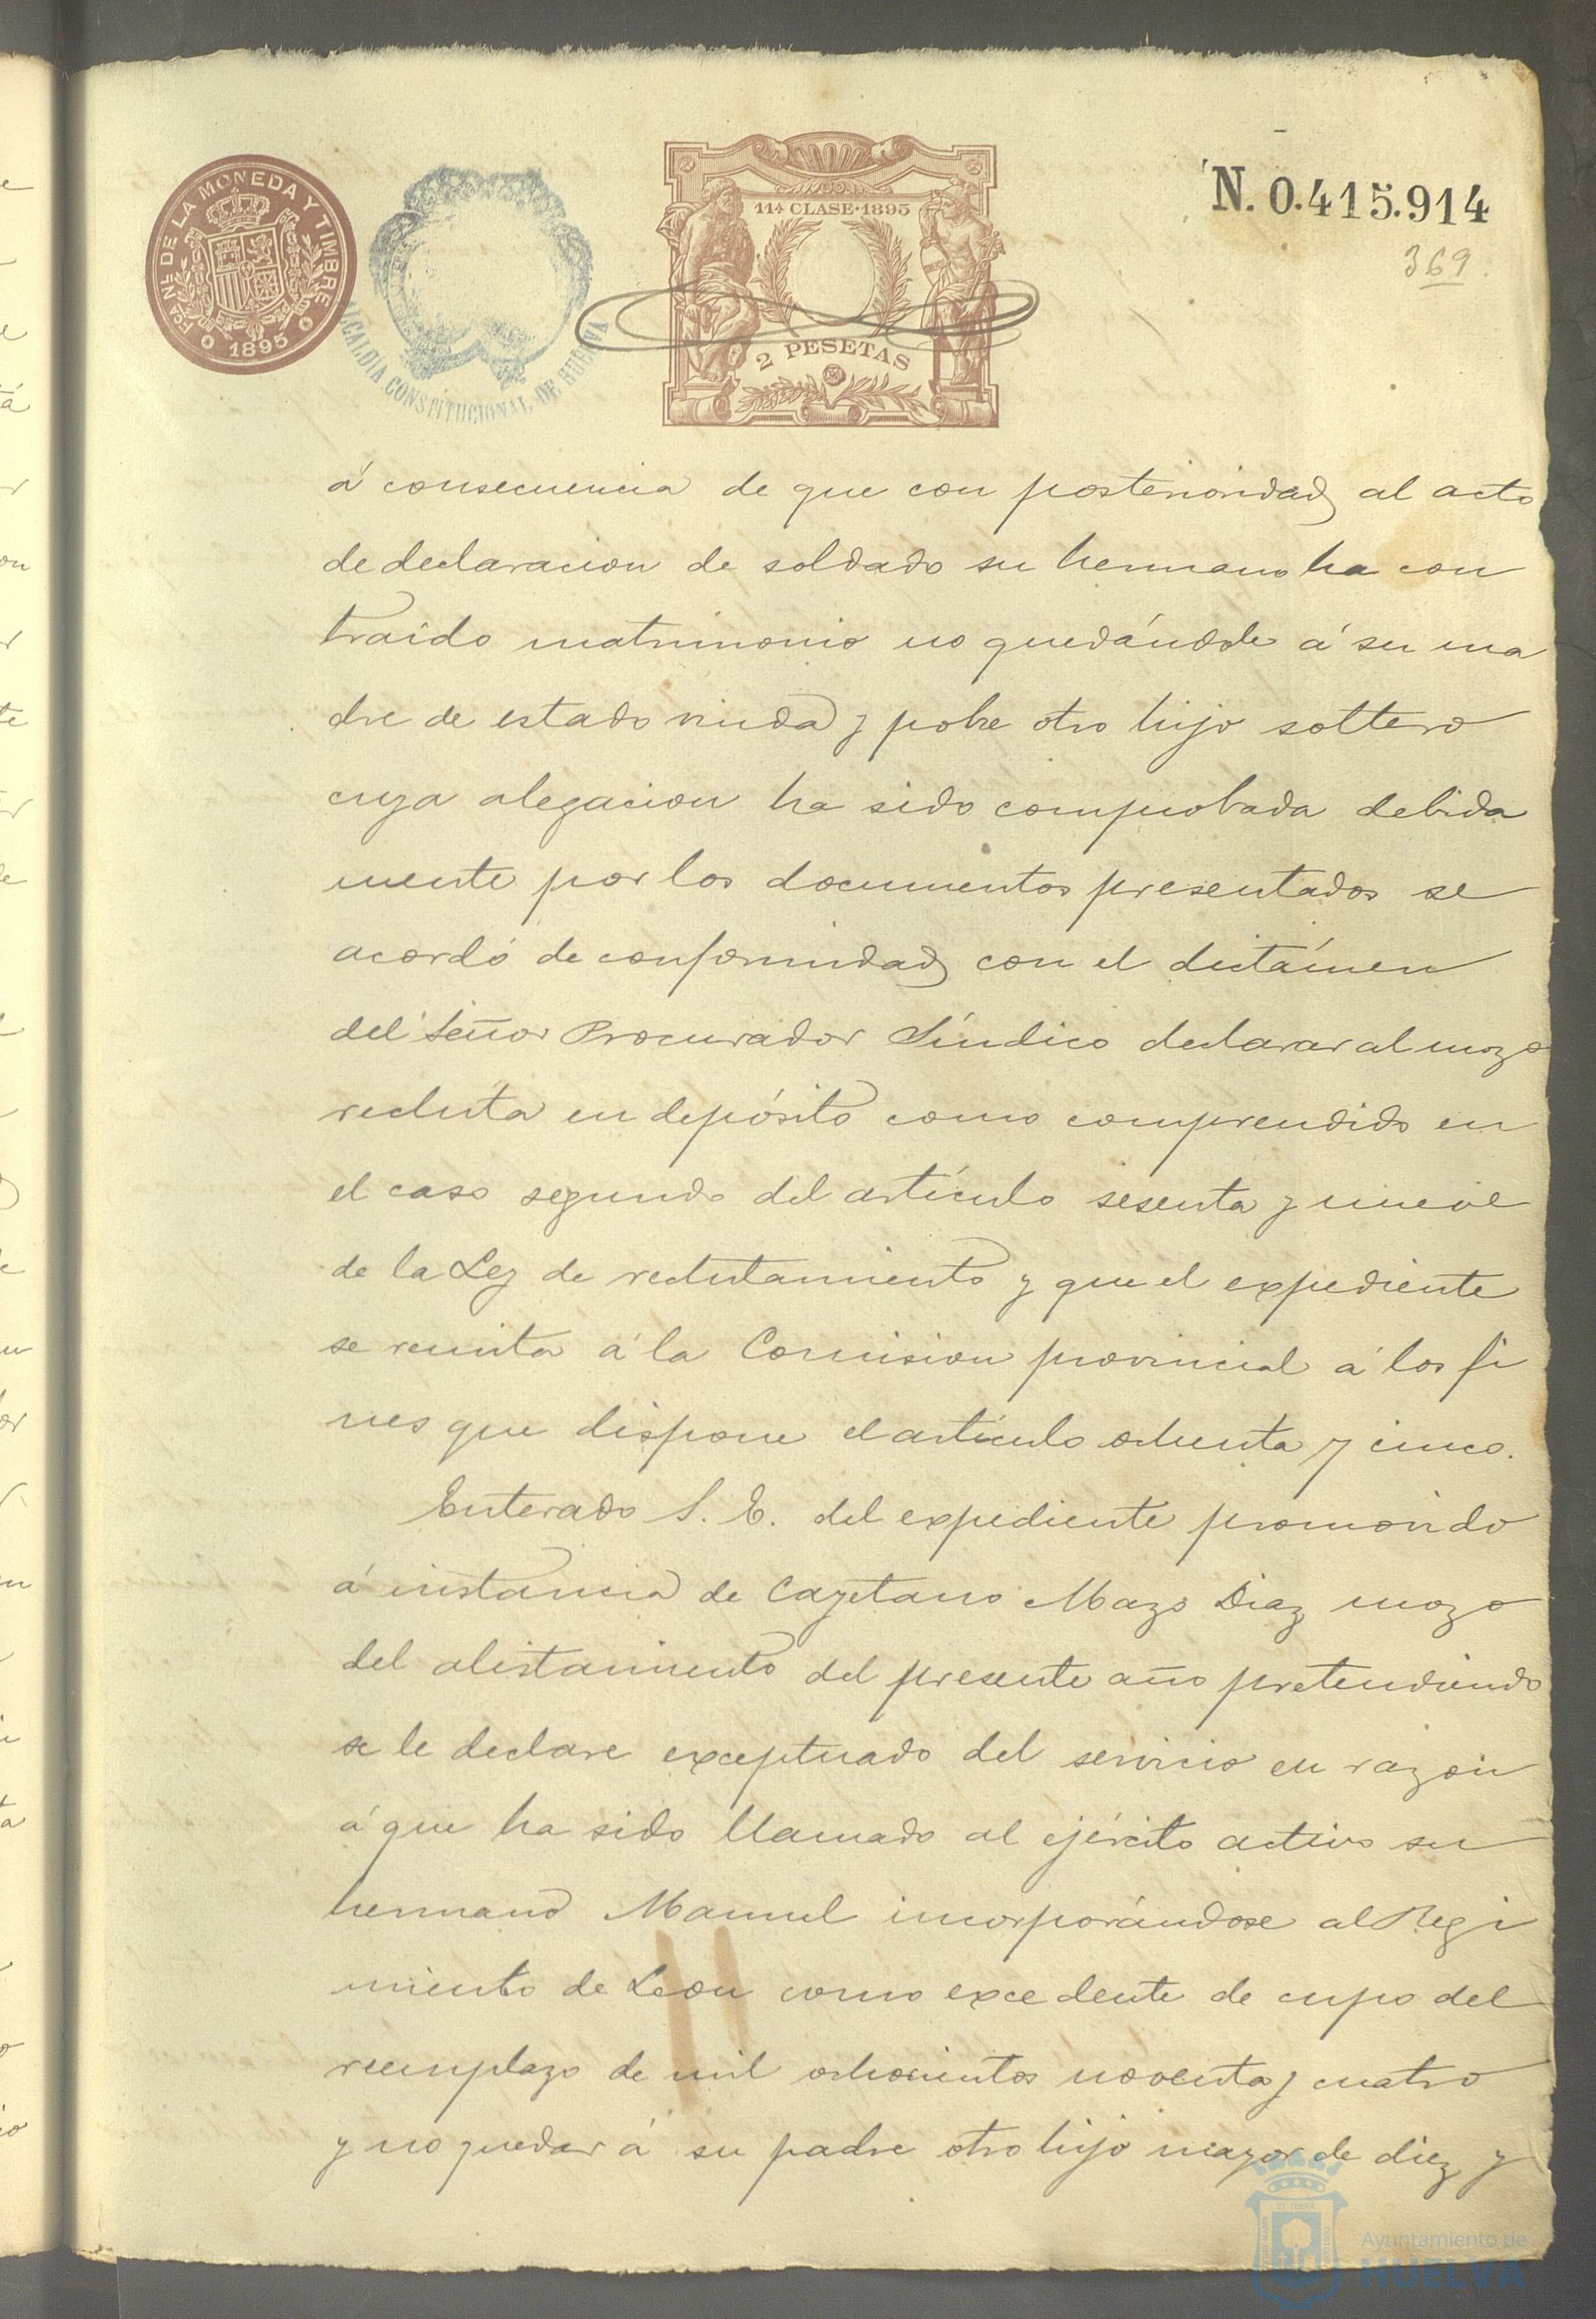 FCA. NL. DE LA MONEDA Y TIMBRE
1895
ALCALDÍA CONSTITUCIONAL DE HUELVA
11ª CLASE·1895
2 PESETAS
N. 0.415.914
369.
á consecuencia de que con posterioridad al acto
de declaracion de soldado su hermano ha con
traido matrimonio no quedándole á su ma
dre de estado viuda y pobre otro hijo soltero
cuya alegacion ha sido comprobada debida
mente por los documentos presentados se
acordó de conformidad con el dictámen
del Señor Procurador Síndico declarar al mozo
recluta en depósito como comprendido en
el caso segundo del artículo sesenta y nueve
de la Ley de reclutamiento y que el expediente
se remita á la Comision provincial á los fi
nes que dispone el artículo ochenta y cinco.
Enterado S. E. del expediente promovido
á instancia de Cayetano Mazo Diaz mozo
del alistamiento del presente año pretendiendo
se le declare exceptuado del servicio en razon
á que ha sido llamado al ejército activo su
hermano Manuel incorporándose al Regi
miento de Leon como excedente de cupo del
reemplazo de mil ochocientos noventa y cuatro
y no quedar á su padre otro hijo mayor de diez y
Ayuntamiento de
HUELVA